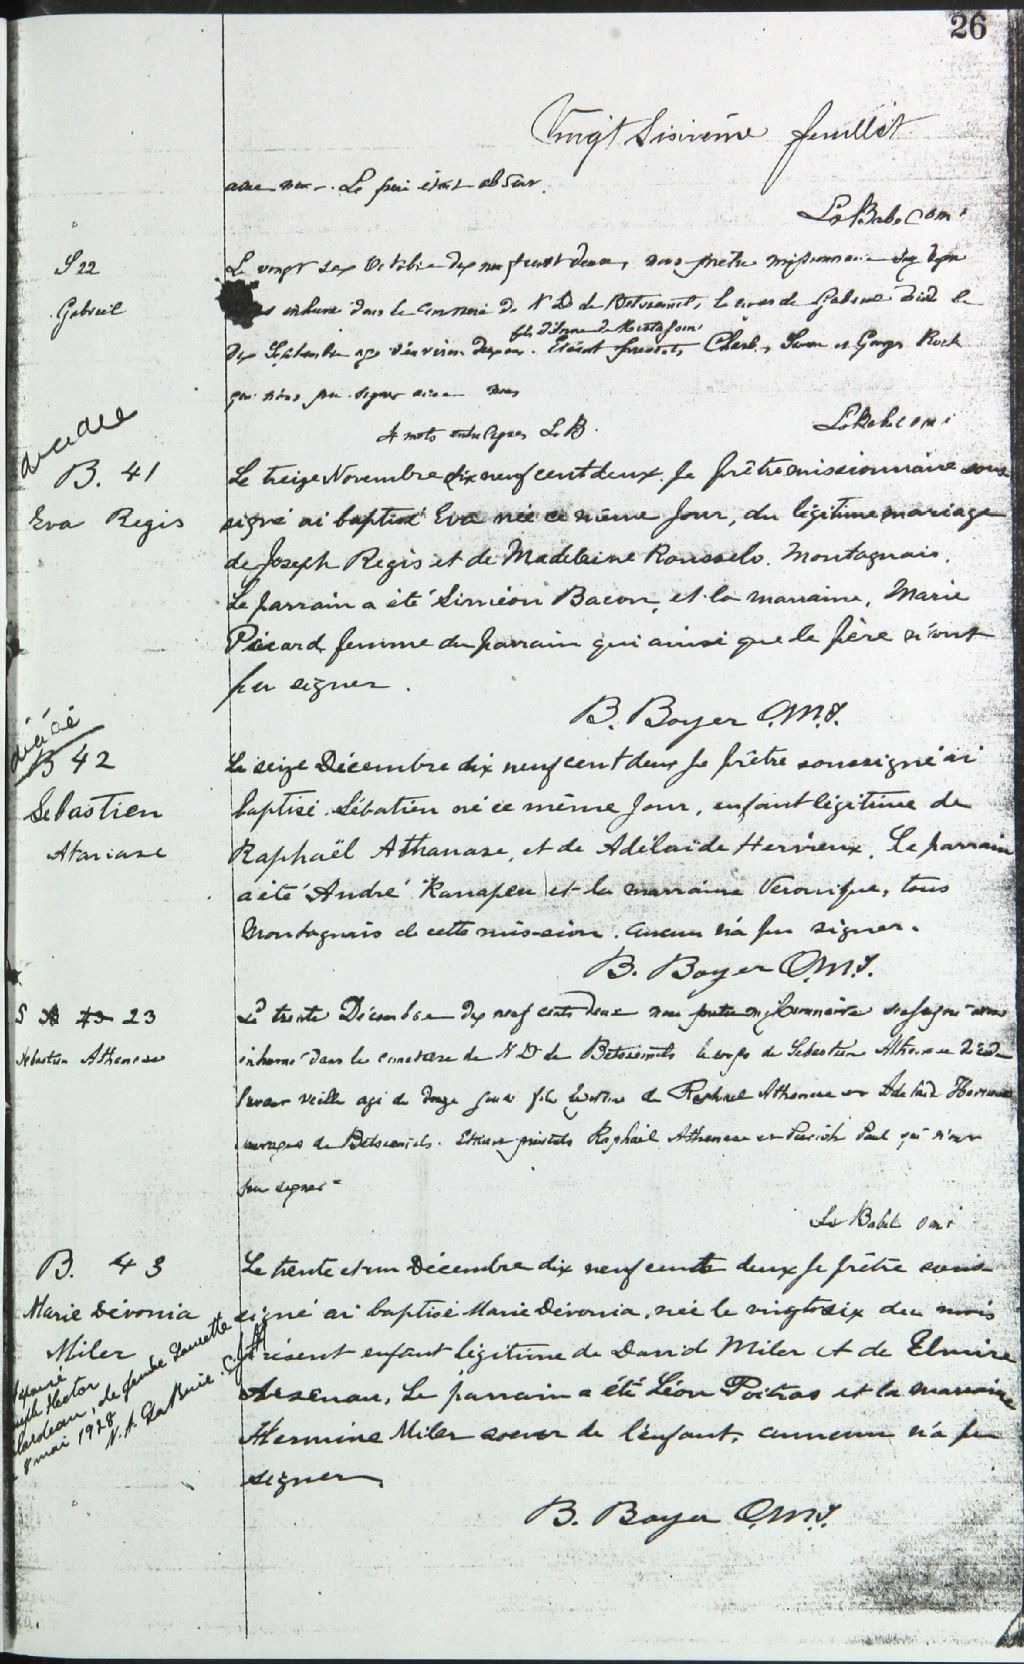 26
Vingt Sixième feuillet
avec nous. Le père était absent.
Ls Babel omi
S 22
Gabriel
Le vingt six Octobre dix neuf cent deux, nous prêtre missionnaire
inhumé dans le cimetière de N D de Betsiamits, le corps de Gabriel décédé le
fils d'Anne de Mistassini
dix Septembre agé d'environ dix ans. Etaient présents Charles Simon et Georges Rock
qui n'ont pu signer avec nous
4 mots entre lignes Ls B.
Ls Babel omi
décédée
B. 41
Eva Regis
Le treize Novembre dix neuf cent deux. Je prêtre missionnaire sous
signé ai baptisé Eva née ce même jour, du légitime mariage
de Joseph Regis et de Madeleine Rousselo. Montagnais.
Le parrain a été Siméon Bacon, et la marraine, Marie
Picard femme du parrain qui ainsi que le père n'ont
pu signer.
B. Boyer O.M.I.
décédé
B 42
Sebastien
Atanase
Le seize Décembre dix neuf cent deux Je prêtre soussigné ai
baptisé Sébatien né ce même jour, enfant légitime de
Raphaël Athanase, et de Adélaïde Hervieux. Le parrain
a été André Kanapeu et la marraine Veronique, tous
Montagnais de cette mission. aucun n'a pu signer.
B. Boyer O.M.I.
S 23
Sebastien Athanase
Le trente Décembre dix neuf cent deux nous prêtre missionnaire soussigné avons
inhumé dans le cimetière de N D de Betsiamits le corps de Sebastien Athanase décédé
l'avant veille agé de douze jours fils légitime de Raphael Athanase et Adelaid Hervieux
sauvages de Betsiamits. Etaient présents Raphaël Athanase et Paul qui n'ont
pu signer
Ls Babel omi
B. 43
Marie Dévonia
Miler
Le trente et un Décembre dix neuf cent deux Je prêtre sous
signé ai baptisé Marie Dévonia, née le vingt six du mois
présent enfant légitime de David Miler et de Elmire
Arsenau, Le parrain a été Léon Poitras et la marraine
Hermine Miler soeur de l'enfant. aucun n'a pu
signer.
B. Boyer O.M.I.
épousé
Joseph Hector
le 8 mai 1928